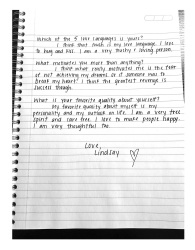 Which of the 5 love languages is yours?
I think that touch is my love language. I love
to hug and kiss. I am a very touchy & loving person.
What motivates you more than anything?
I think what really motivates me is the fear
of not achieving my dreams, or if someone was to
break my heart I think the greatest revenge is
success though.
What is your favorite quality about yourself?
My favorite quality about myself is my
personality and my outlook on life. I am a very free
spirit and care free. I love to make people happy.
I am very thoughtful too.
Love,
Lindsay